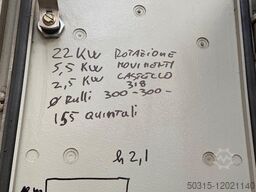 22 KW ROTAZIONE
5,5 KW MOVIMENTI
2,5 KW CASTELLO
318
Ø Rulli 300-300-
155 QUINTALI
h 2,1
50315-12021140